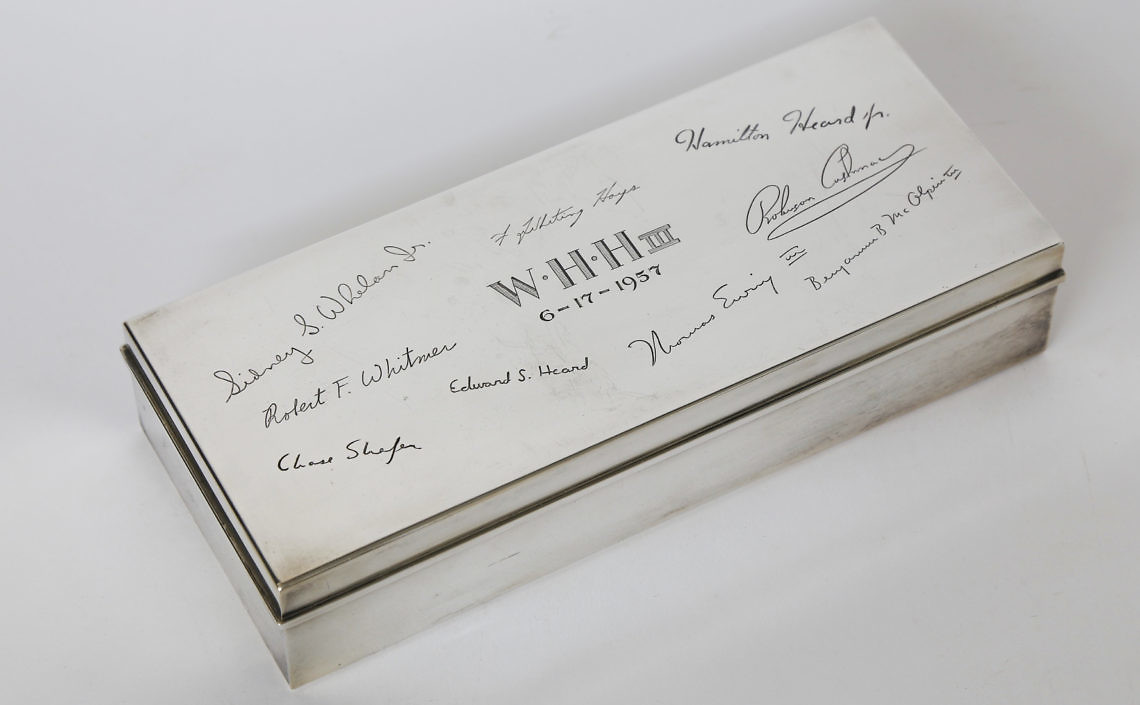 Hamilton Heard Jr.
F Whiting Hays
Sidney S. Whelan Jr.
W·H·H III
6-17-1957
Robinson Cushman
Benjamin B McAlpin III
Thomas Ewing III
Robert F. Whitmer
Edward S. Heard
Chase Shafer